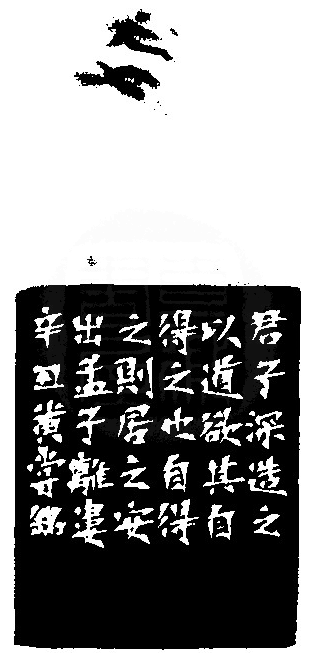 君子深造之
以道欲其自
得之也自得
之則居之安
出孟子離婁
辛丑黃嘗銘